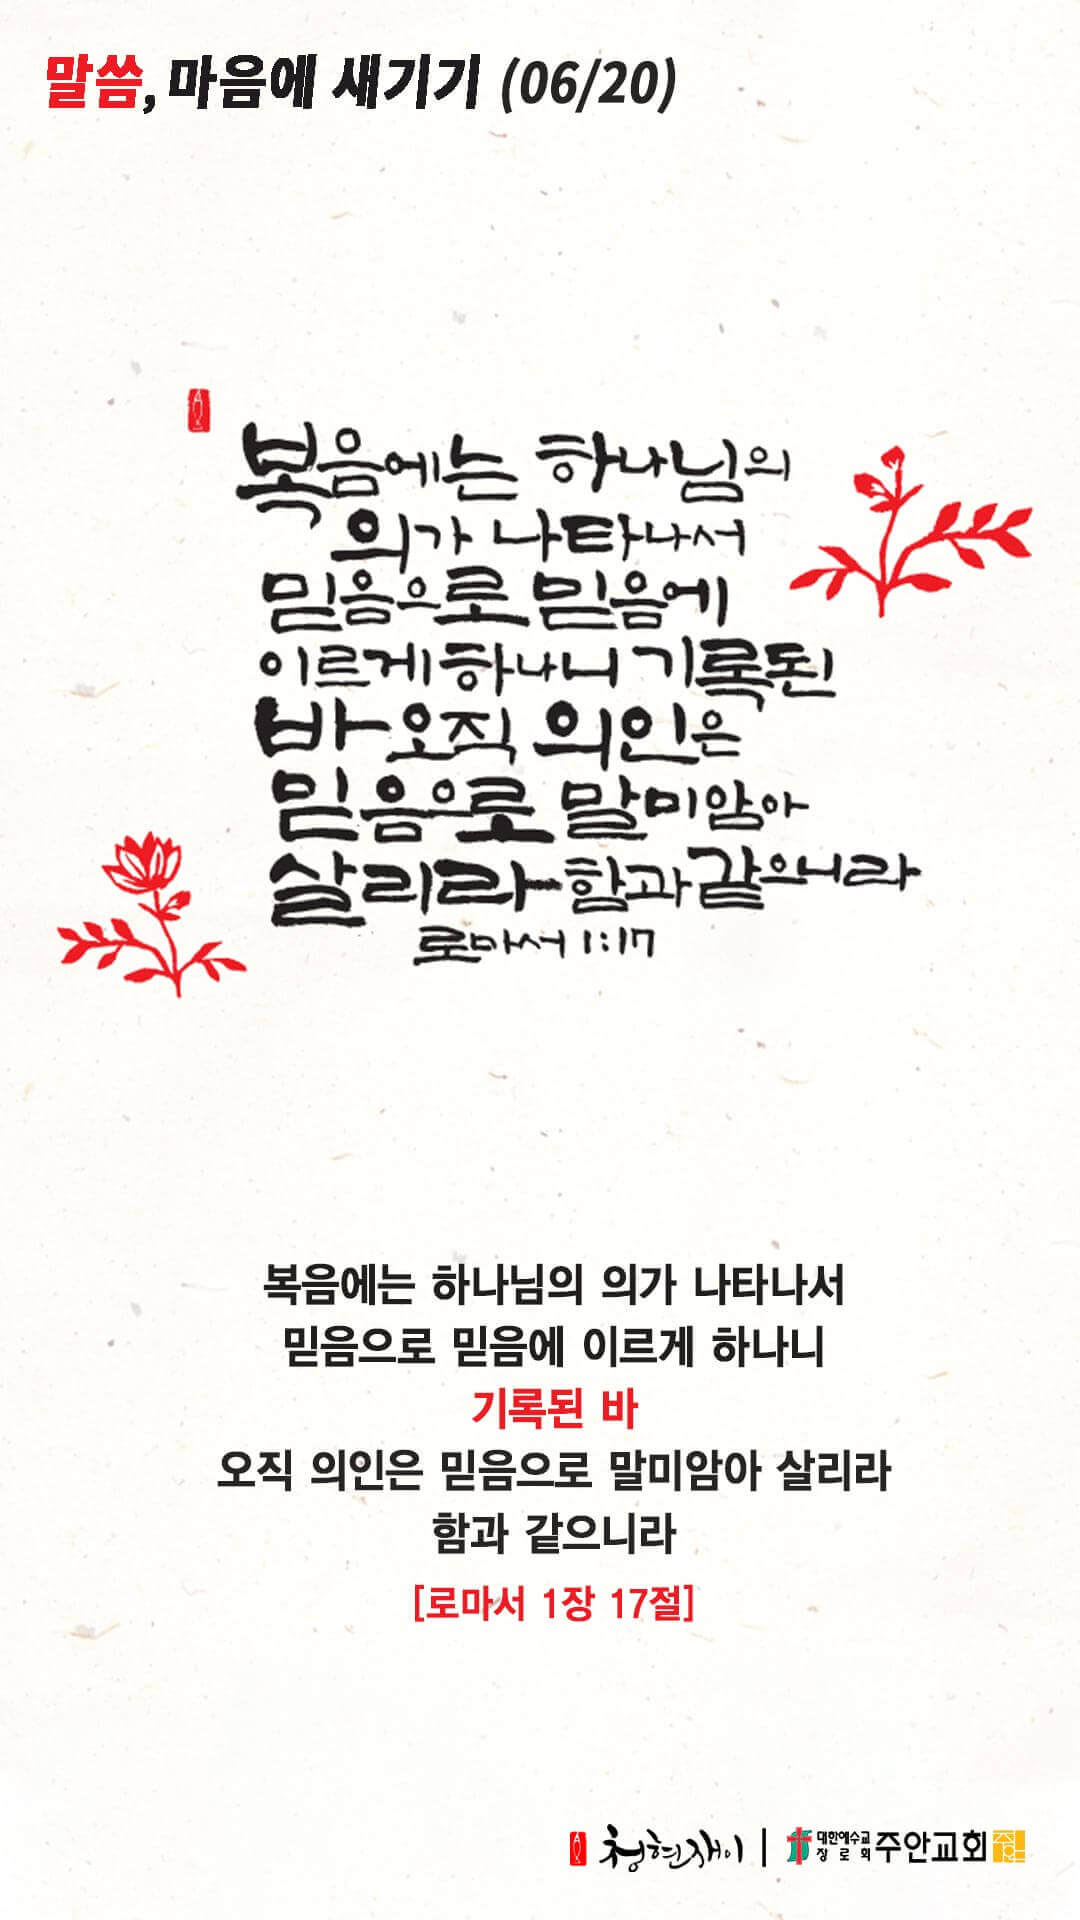 말씀, 마음에 새기기 (06/20)
복음에는 하나님의
의가 나타나서
믿음으로 믿음에
이르게 하나니 기록된
바 오직 의인은
믿음으로 말미암아
살리라 함과 같으니라
로마서 1:17
복음에는 하나님의 의가 나타나서
믿음으로 믿음에 이르게 하나니
기록된 바
오직 의인은 믿음으로 말미암아 살리라
함과 같으니라
[로마서 1장 17절]
청현재이 | 대한예수교
장로회 주안교회